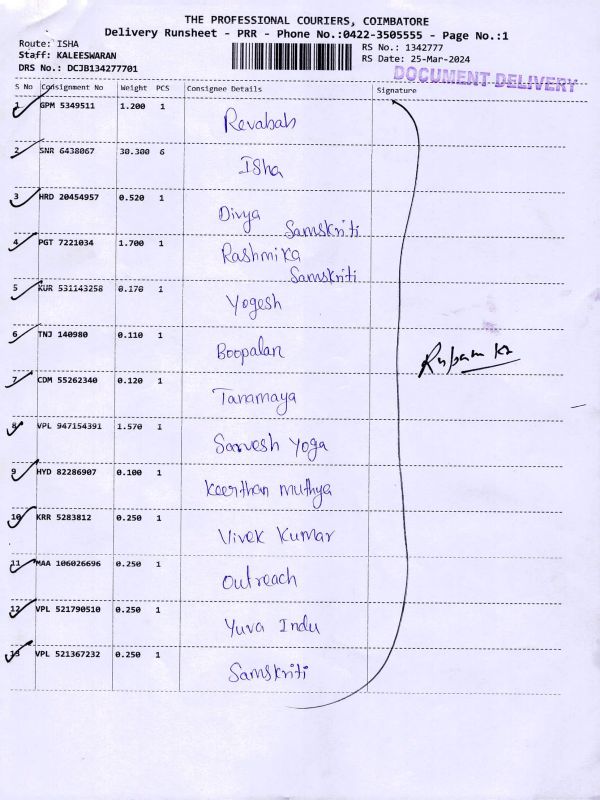 THE PROFESSIONAL COURIERS, COIMBATORE
Delivery Runsheet - PRR - Phone No.:0422-3505555 - Page No.:1
Route: ISHA
RS No.: 1342777
Staff: KALEESWARAN
RS Date: 25-Mar-2024
DRS No.: DCJB134277701
DOCUMENT DELIVERY
S No Consignment No Weight PCS Consignee Details Signature
1 GPM 5349511 1.200 1
Revabah
2 SNR 6438067 30.300 6
ISha
3 HRD 20454957 0.520 1
Divya
Samskriti
4 PGT 7221034 1.700 1
Rashmika
Samskriti
5 KUR 531143258 0.170 1
Yogesh
6 TNJ 140980 0.110 1
Boopalan
7 CDM 55262340 0.120 1
Tanamaya
8 VPL 947154391 1.570 1
Sarvesh Yoga
9 HYD 82286907 0.100 1
Keerthan muthya
10 KRR 5283812 0.250 1
Vivek Kumar
11 MAA 106026696 0.250 1
Outreach
12 VPL 521790510 0.250 1
Yuva Indu
13 VPL 521367232 0.250 1
Samskriti